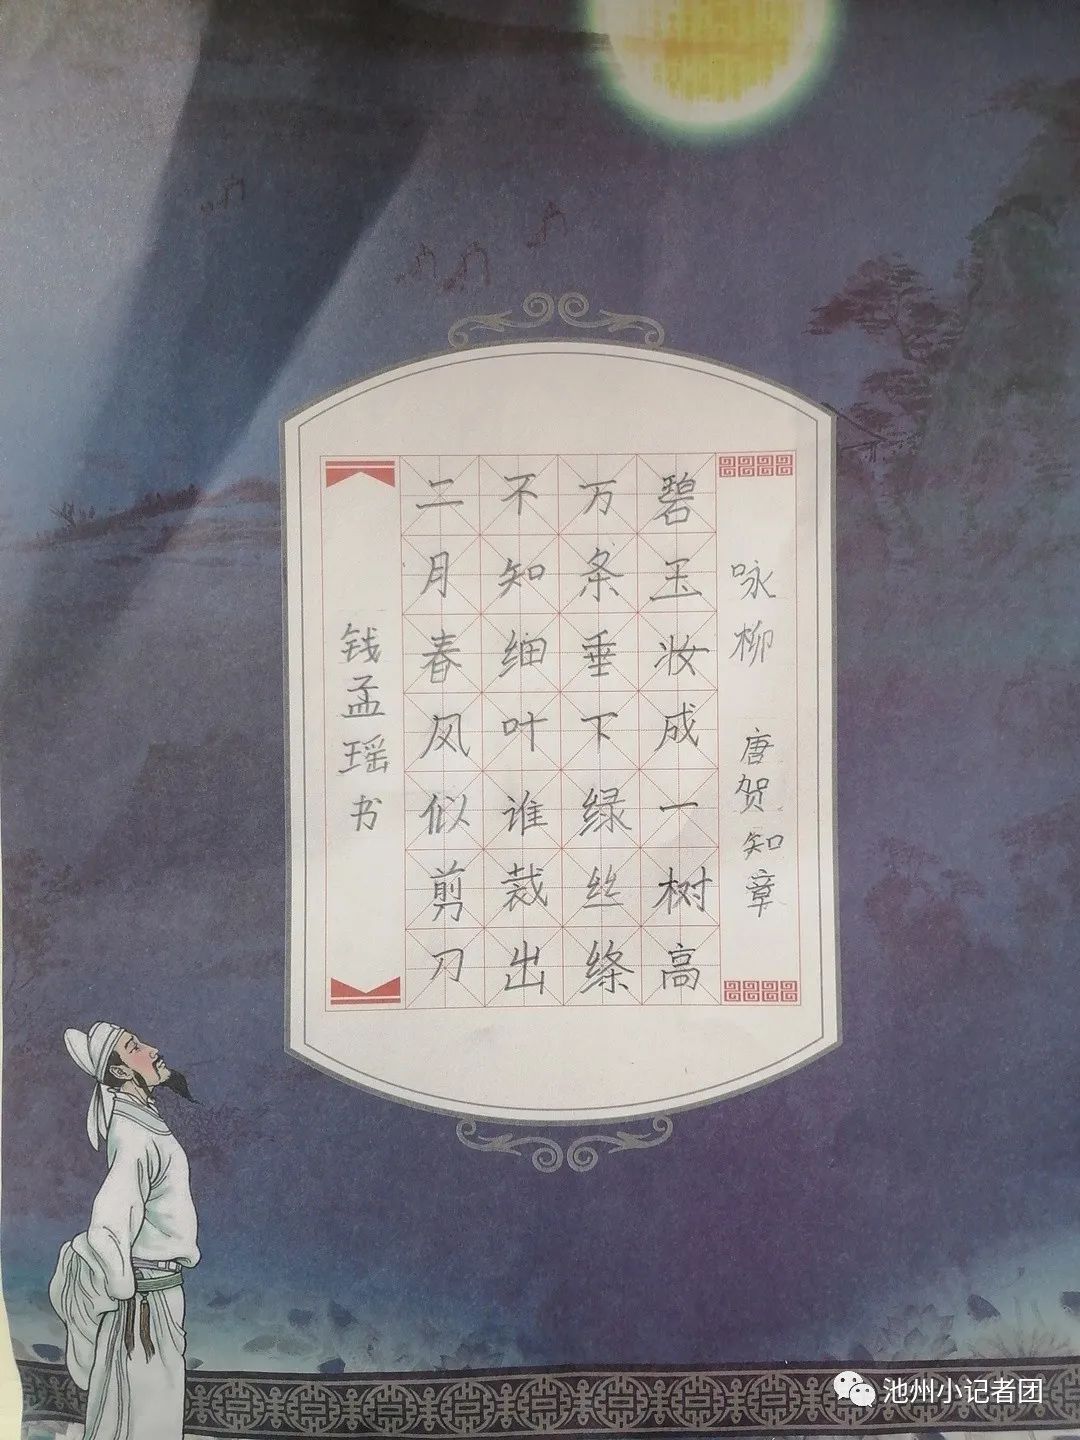 咏柳 唐 贺知章
碧玉妆成一树高
万条垂下绿丝绦
不知细叶谁裁出
二月春风似剪刀
钱孟瑶书
池州小记者团